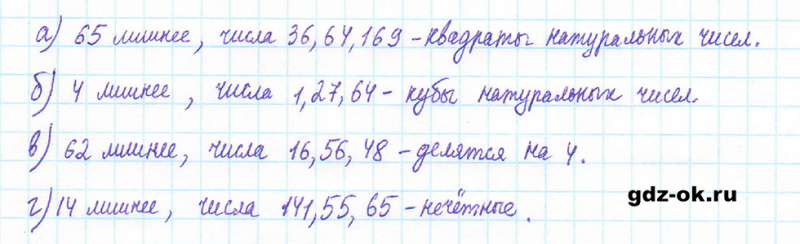 а) 65 лишнее, числа 36, 64, 169 – квадраты натуральных чисел.
б) 4 лишнее, числа 1, 27, 64 – кубы натуральных чисел.
в) 62 лишнее, числа 16, 56, 48 – делятся на 4.
г) 14 лишнее, числа 141, 55, 65 – нечётные.
gdz-ok.ru